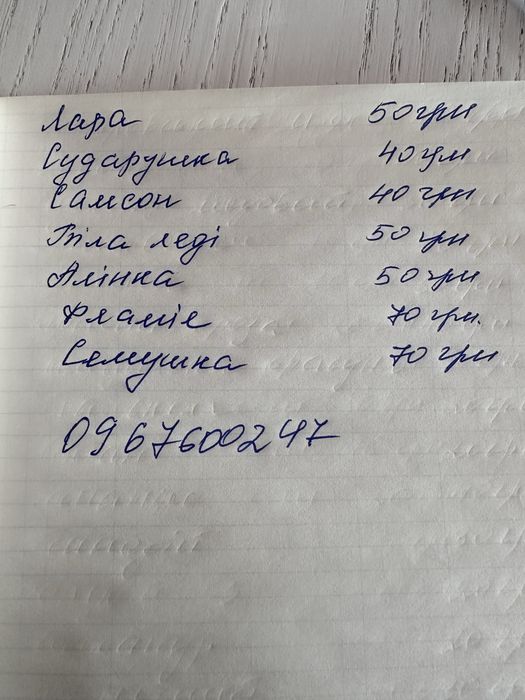 Лара 50 грн
Сударушка 40 грн
Самсон 40 грн
Біла леді 50 грн
Алінка 50 грн
Фламіе 70 грн.
Семушка 70 грн
0967600247